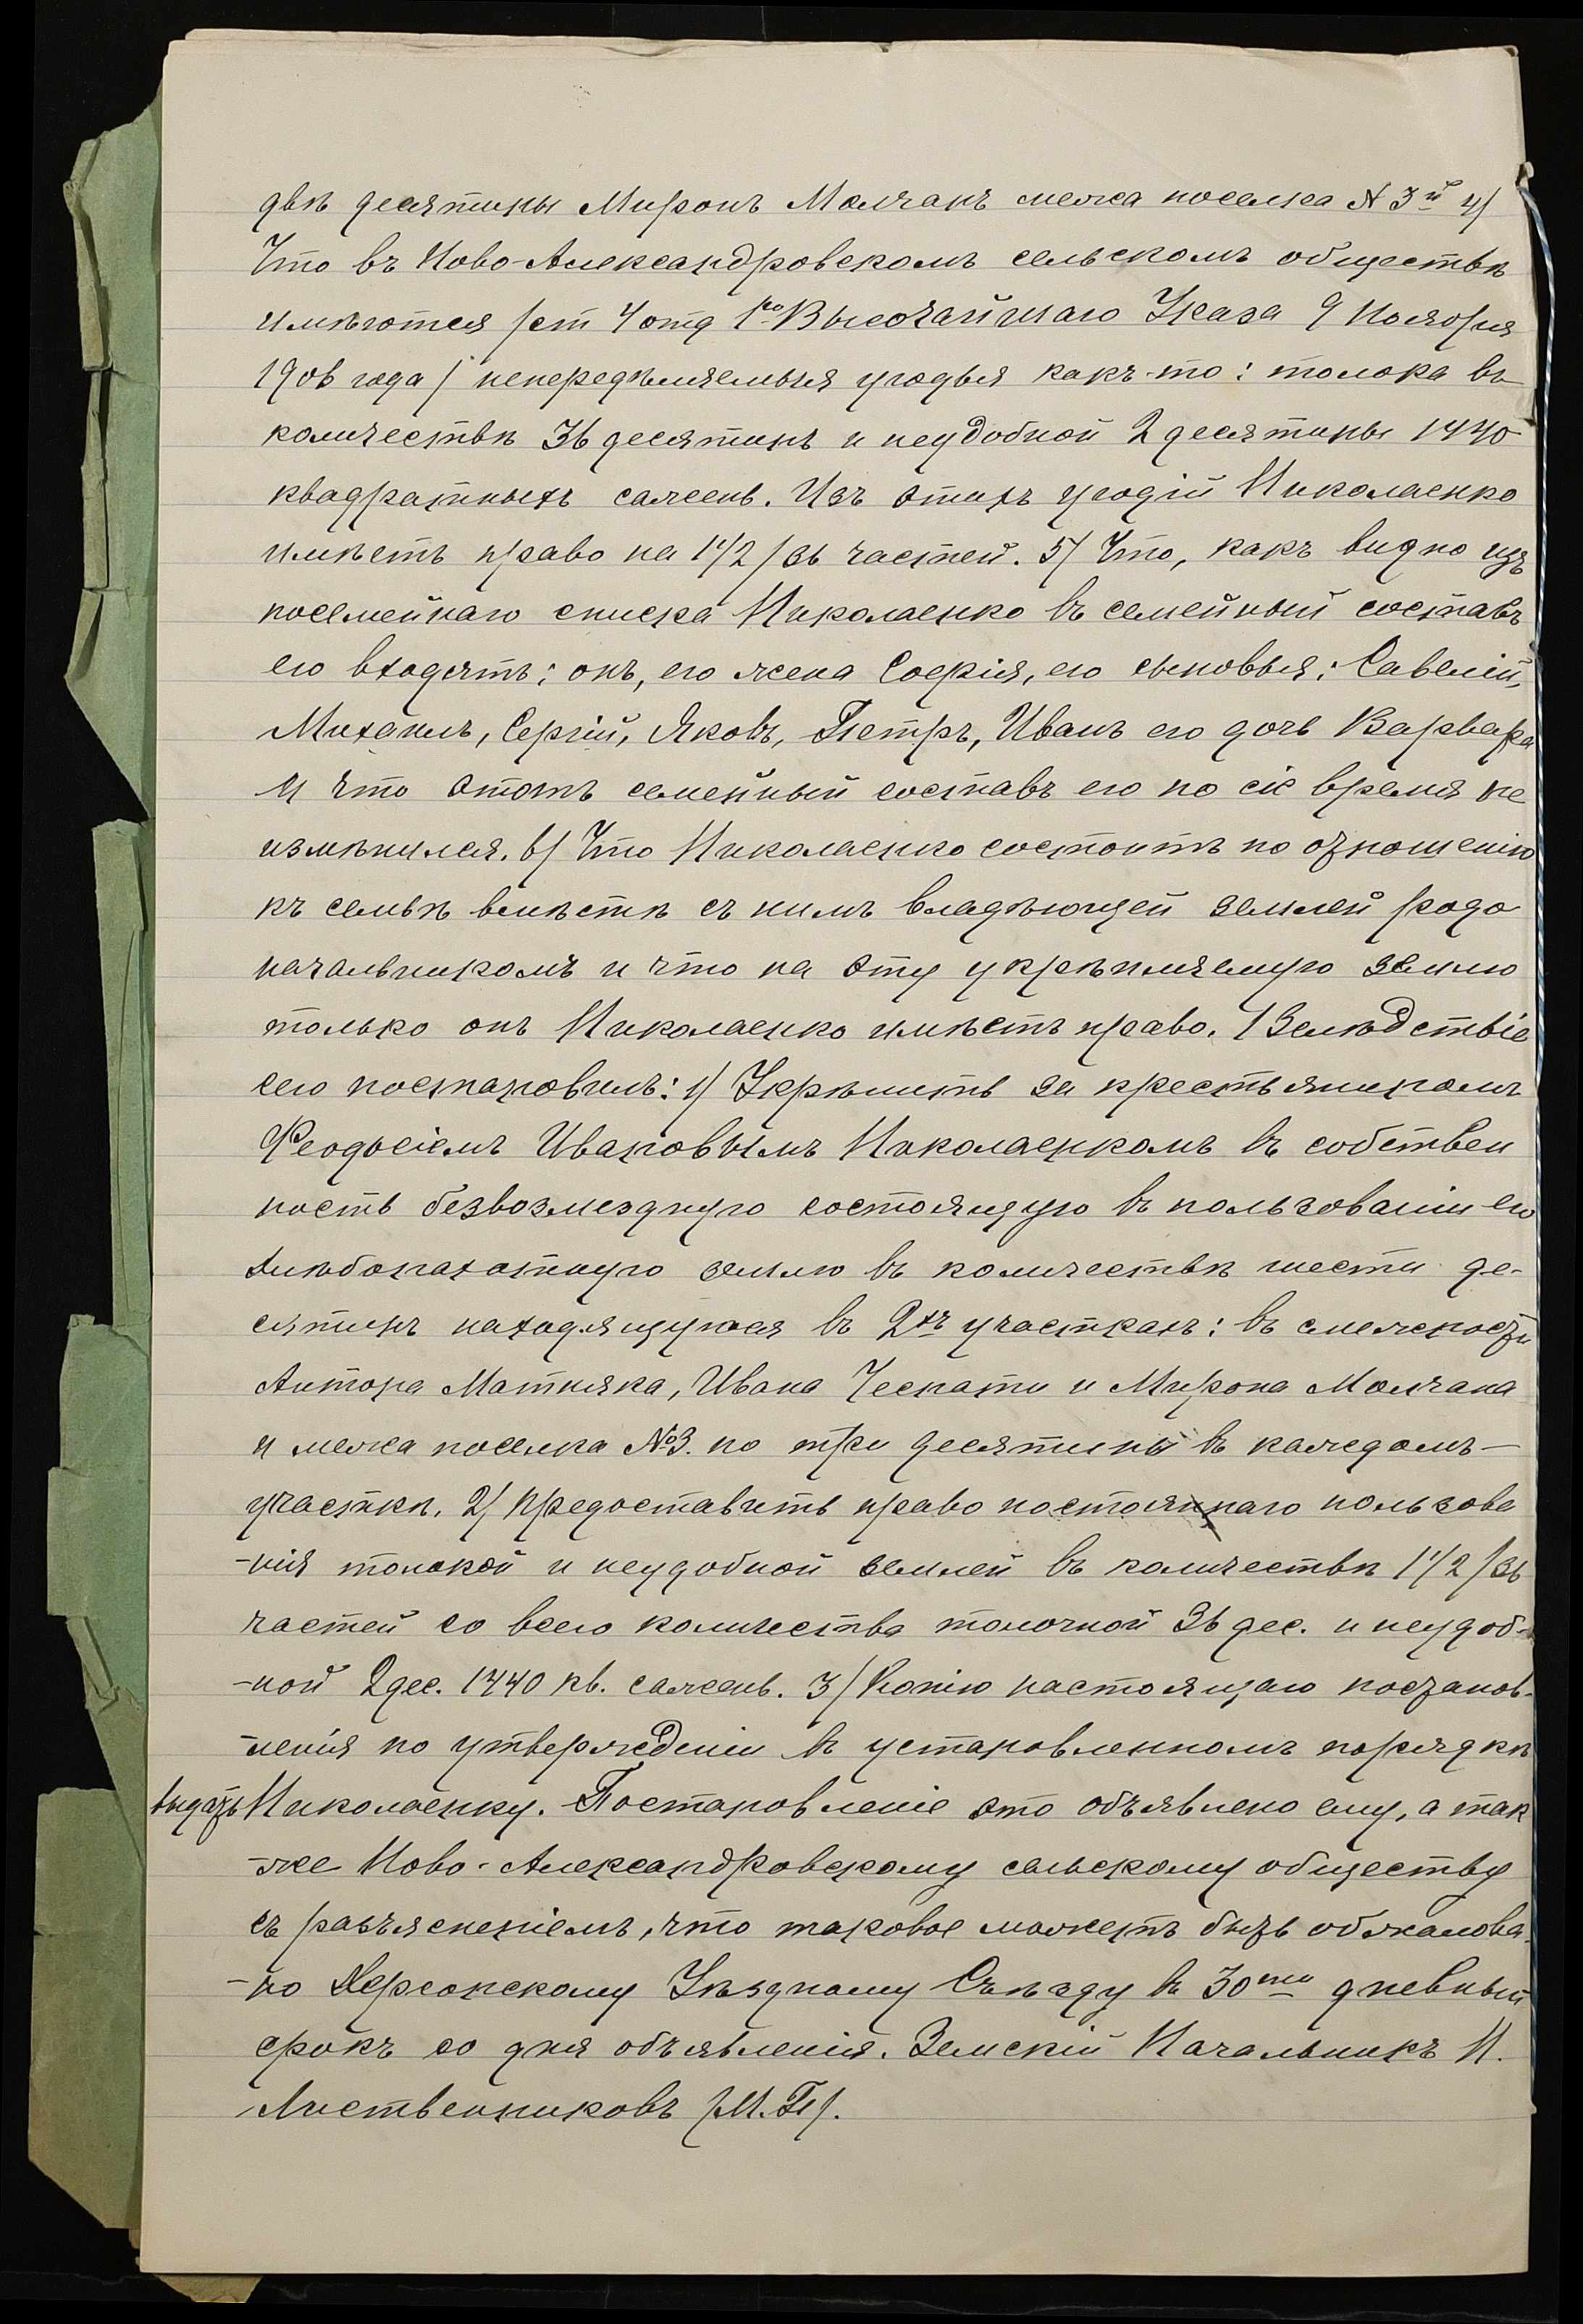 двѣ десятины Миронъ Молчанъ межа поселка № 3й 4/
Что въ Ново-Александровскомъ сельскомъ обществѣ
имѣются /ст 4 отд 1го Высочайшаго Указа 9 Ноября
1906 года/ непередѣляемыя угодья какъ-то: толока въ
количествѣ 36 десятинъ и неудобной 2 десятины 1440
квадратныхъ сажень. Изъ этихъ угодій Николаенко
имѣетъ право на 1 1/2 /36 частей. 5/ Что, какъ видно изъ
посемейнаго списка Николаенко въ семейный составъ
его входятъ: онъ, его жена Софія, его сыновья: Савелій,
Михаилъ, Сергій, Яковъ, Петръ, Иванъ его дочь Варвара
и что этотъ семейный составъ его по сіе время не
измѣнился. 6/ Что Николаенко состоитъ по отношенію
къ семьѣ вмѣстѣ съ нимъ владѣющей землей родо
начальникомъ и что на эту укрѣпляемую землю
только онъ Николаенко имѣетъ право. Вслѣдствіе
сего постановилъ: 1/ Укрѣпить за крестьяниномъ
Феодосіемъ Ивановымъ Николаенкомъ въ собствен
ность безвозмездную состоящую въ пользованіи его
хлѣбопахотную землю въ количествѣ шести де-
сятинъ находящуюся въ 2хъ участкахъ: въ смежности
Антона Матняка, Ивана Чеснати и Мирона Молчана
и межа поселка №3. по три десятины въ каждомъ —
участкѣ. 2/ Предоставить право постояннаго пользова
-нія толокой и неудобной землей въ количествѣ 1 1/2 /36
частей со всего количества толочной 36 дес. и неудоб-
-ной 2 дес. 1440 кв. сажень. 3/ Копію настоящаго постанов-
-ленія по утвержденіи въ установленномъ порядкѣ
выдать Николаенку. Постановленіе это объявлено ему, а так
-же Ново-Александровскому сельскому обществу
съ разъясненіемъ, что таковое можетъ быть обжалова-
-но Херсонскому Уѣздному Съѣзду въ 30ти дневный
срокъ со дня объявленія. Земскій Начальникъ Н.
Листвениковъ /М.П/.